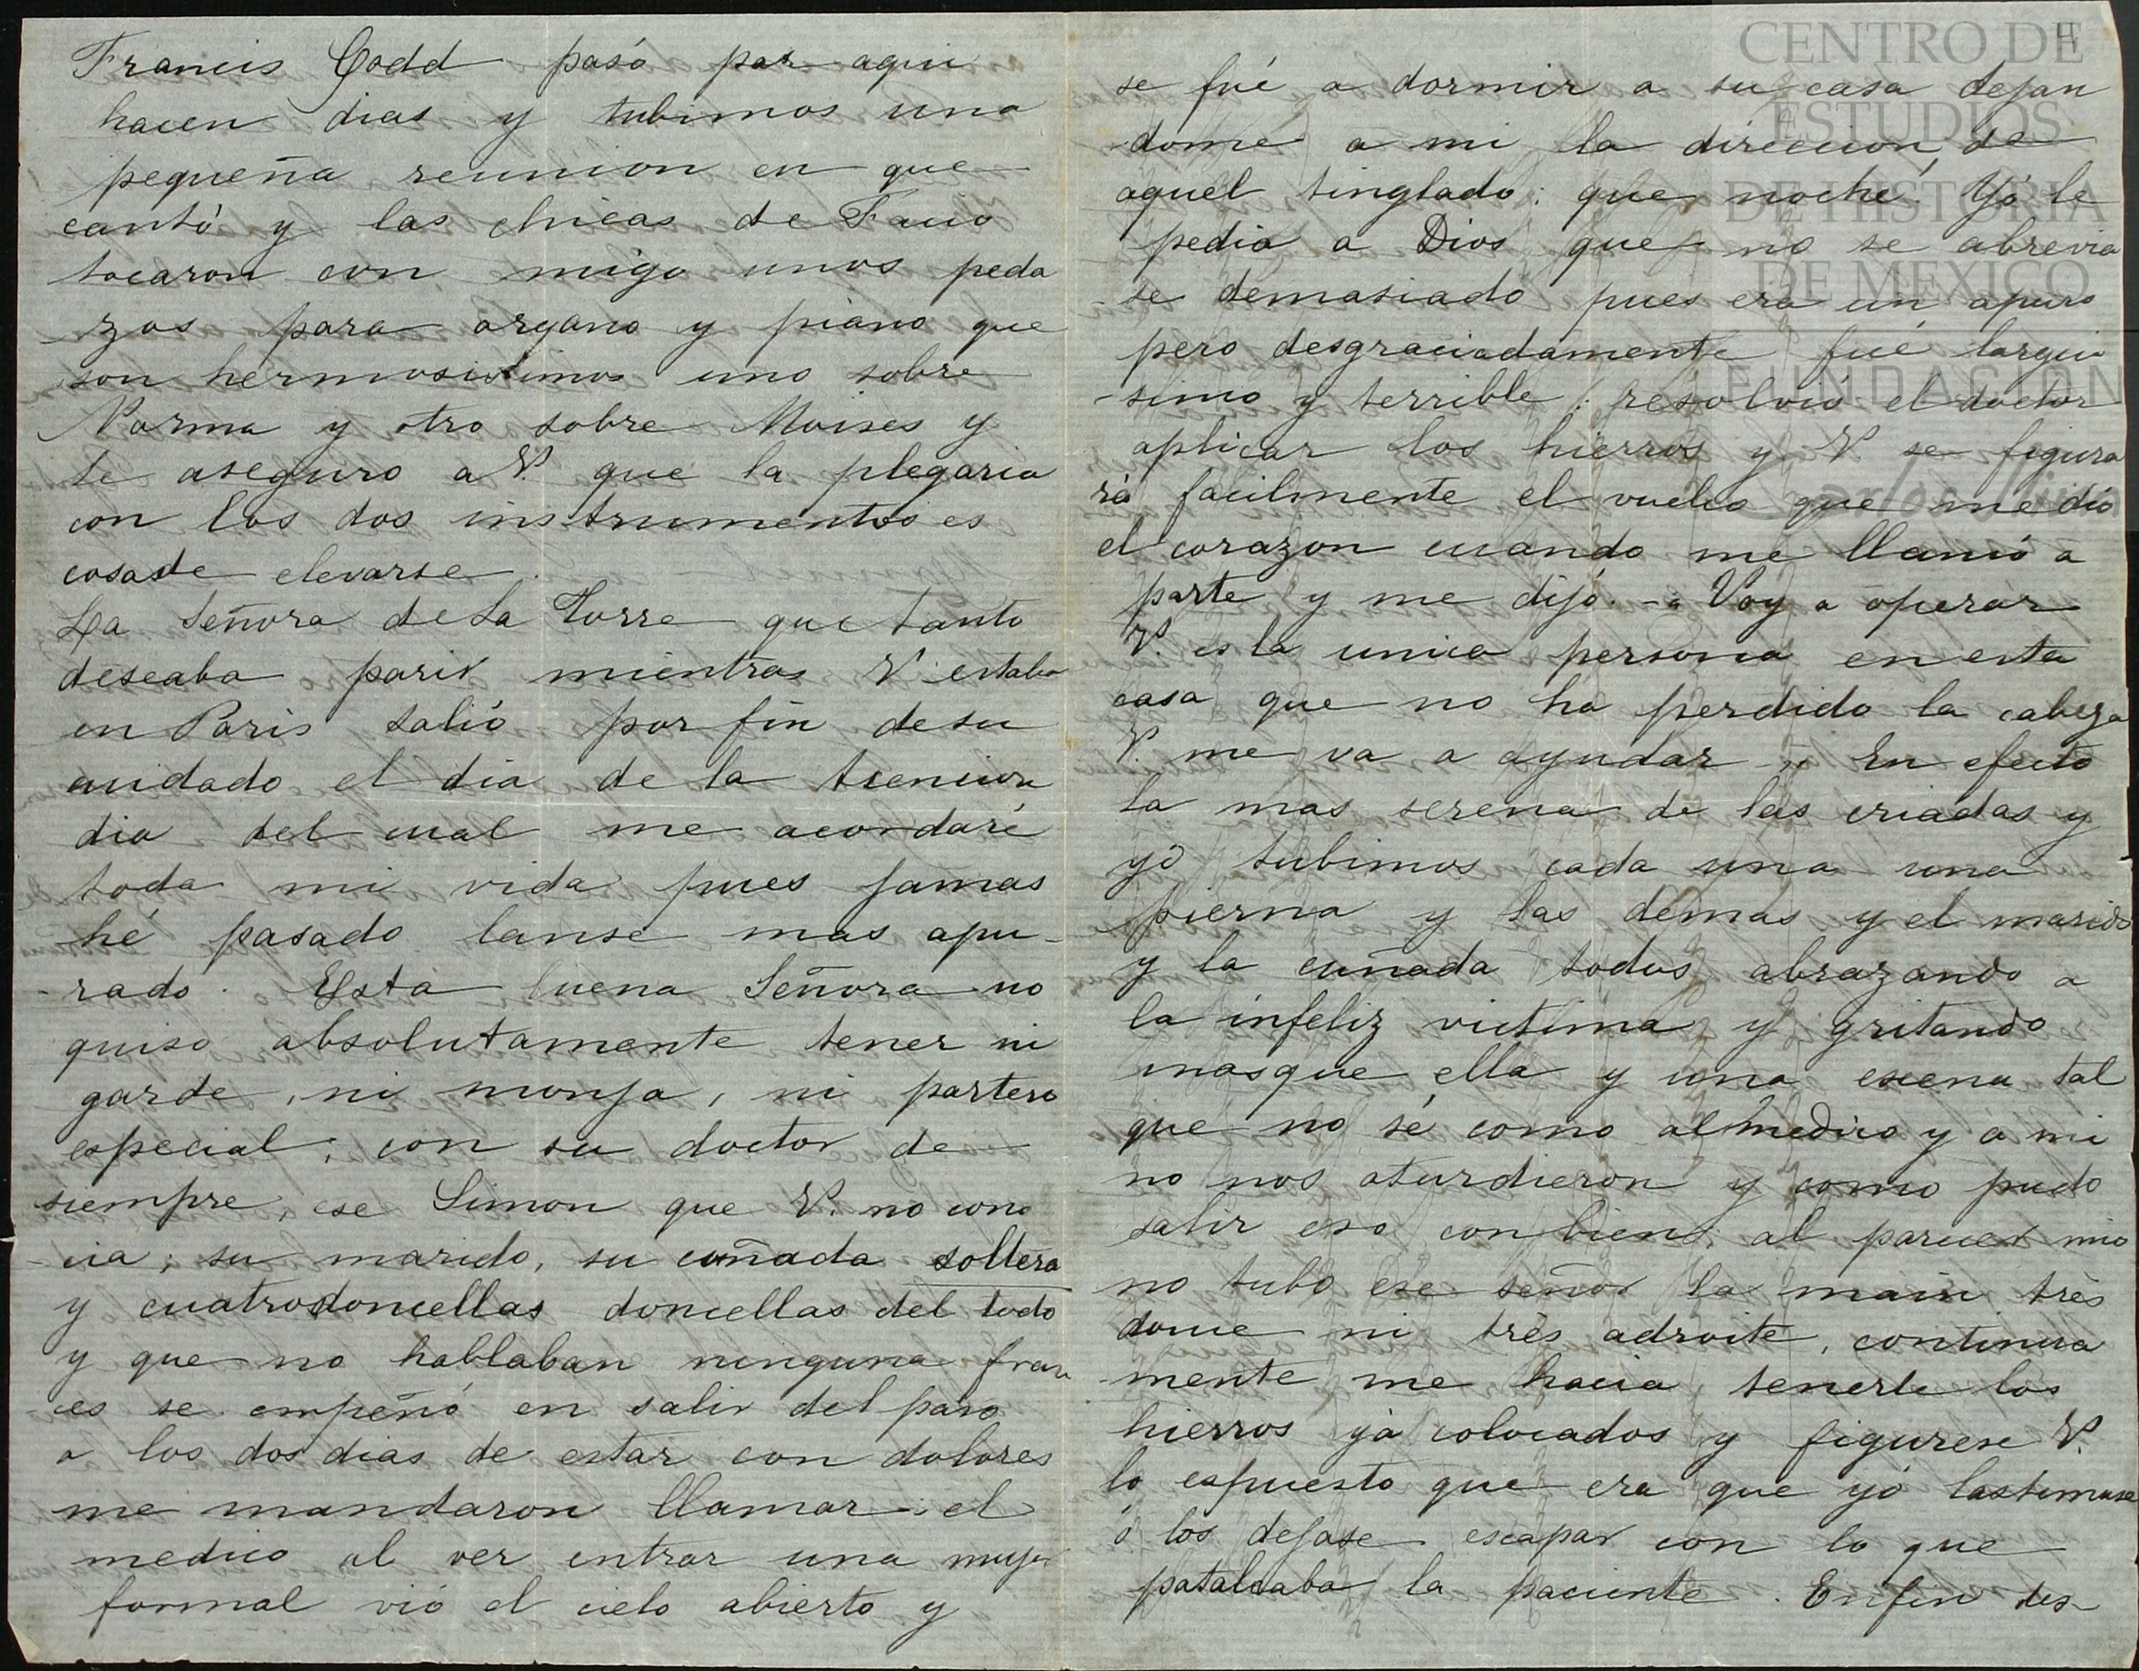 Francis Codd pasó por aqui
hacen dias y tubimos una
pequeña reunion en que
cantó y las chicas de
tocaron con migo unos peda
zos para organo y piano que
son hermosisimos uno sobre
Norma y otro sobre Moises y
le aseguro a V. que la plegaria
con los dos instrumentos es
cosa de elevarse.
La Señora de La Torre que tanto
deseaba parir mientras V. estaba
en Paris salió por fin de su
cuidado el dia de la
dia del cual me acordaré
toda mi vida pues jamas
hé pasado lanse mas apu-
-rado. Esta buena Señora no
quiso absolutamente tener ni
garde, ni monja, ni partero
especial; con su doctor de
siempre, ese Simon que V. no cono
-cia; su marido, su cuñada soltera
y cuatro doncellas doncellas del todo
y que no hablaban ninguna fran
-ces se empeñó en salir del paso
a los dos dias de estar con dolores
me mandaron llamar: el
medico al ver entrar una mujer
formal vió el cielo abierto y
se fué a dormir a su casa dejan
-dome a mi la direccion de
aquel tinglado: que noche! Yó le
pedia a Dios que no se abrevia
-se demasiado pues era un apuro
pero desgraciadamente fué largui
-simo y terrible: resolvió el doctor
aplicar los hierros y V. se figura
rá facilmente el vuelco que me dió
el corazon cuando me llamó a
parte y me dijó. - "Voy a operar
V. es la unica persona en esta
casa que no ha perdido la cabeza
V. me va a ayudar" En efecto
la mas serena de las criadas y
yó tubimos cada una una
pierna y las demas y el marido
y la cuñada todos abrazando a
la infeliz victima y gritando
mas que ella y una escena tal
que no sé como al medico y á mi
no nos aturdieron y como pudo
salir eso con bien; al parecer mio
no tubo ese señor la main très
douce ni très adroite, continua
-mente me hacia tenerle los
hierros yá colocados y figurese V.
lo espuesto que era que yó lastimase
ó los dejase escapar con lo que
pataleaba la paciente. En fin des-
CENTRO DE
ESTUDIOS
DE HISTORIA
DE MEXICO
FUNDACION
Carlos Slim